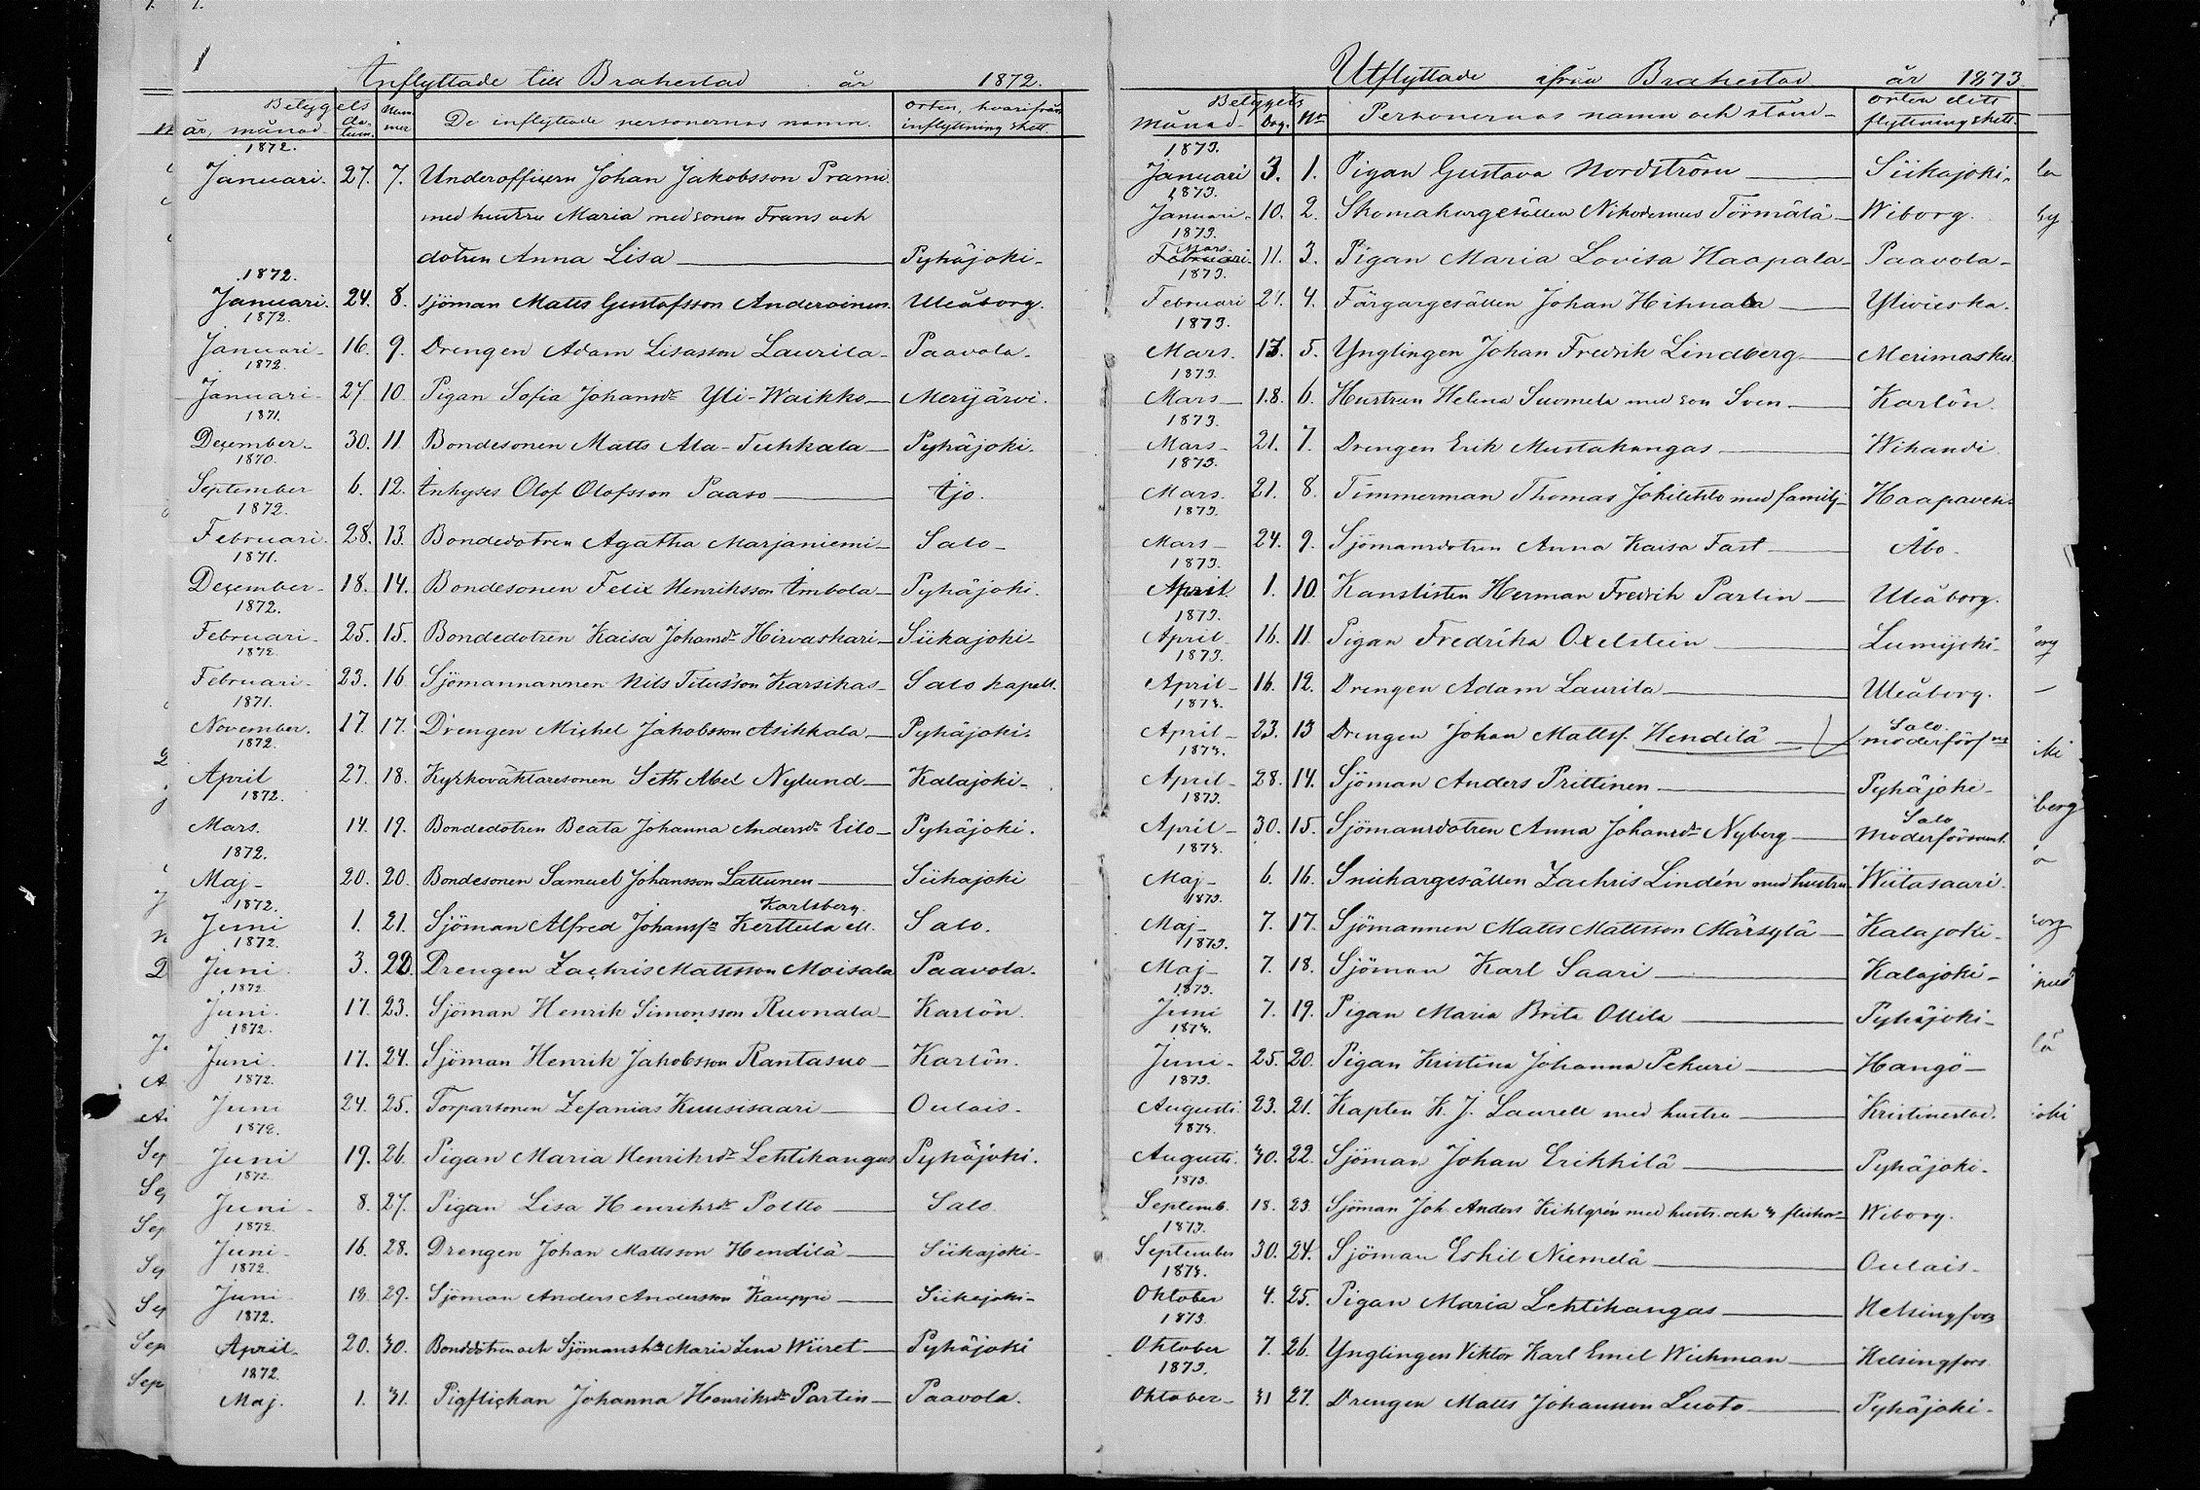 Inflyttade till Brahestad år 1872.
Betygets
år, månad. da-tum. Num-mer De inflyttade personernas namn. Orten, hvarifrån inflyttning skett.
1872.
Januari. 27. 7. Underofficern Johan Jakobsson Prami
med hustru Maria med sonen Frans och
dotren Anna Lisa Pyhäjoki
1872.
Januari. 24. 8. Sjöman Matts Gustafsson Anderoinen Uleåborg.
1872.
Januari 16. 9. Drengen Adam Lisasson Laurila Paavola.
1872.
Januari 27. 10. Pigan Sofia Johansdr Yli-Waikko Merijärvi.
1871.
December 30. 11. Bondesonen Matts Ala-Tuhkala Pyhäjoki.
1870.
September 6. 12. Inhyses Olof Olofsson Paaso Ijo.
1872.
Februari. 28. 13. Bondedotren Agatha Marjaniemi Salo
1871.
December 18. 14. Bondesonen Felix Henriksson Imbola Pyhäjoki.
1872.
Februari 25. 15. Bondedotren Kaisa Johansdr Hirvaskari Siikajoki
1872.
Februari 23. 16. Sjömannannen Nils Titusson Karsikas Salo kapell.
1871.
November. 17. 17. Drengen Michel Jakobsson Asikkala Pyhäjoki.
1872.
April 27. 18. Kyrkoväktaresonen Seth Abel Nylund Kalajoki
1872.
Mars. 14. 19. Bondedotren Beata Johanna Andersdr Eilo Pyhäjoki.
1872.
Maj 20. 20. Bondesonen Samuel Johansson Lattunen Siikajoki
1872. Karlsberg.
Juni 1. 21. Sjöman Alfred Johanssn Kerttula ell. Salo.
1872.
Juni 3. 22. Drengen Zachris Mattsson Moisala Paavola.
1872.
Juni. 17. 23. Sjöman Henrik Simonsson Ruonala Karlön.
1872.
Juni. 17. 24. Sjöman Henrik Jakobsson Rantasuo Karlön.
1872.
Juni 24. 25. Torparsonen Zefanias Kuusisaari Oulais.
1872.
Juni 19. 26. Pigan Maria Henriksdr Lehtikangas Pyhäjoki.
1872.
Juni 8. 27. Pigan Lisa Henriksdr Poltto Salo
1872.
Juni 16. 28. Drengen Johan Mattsson Hendilä Siikajoki
1872.
Juni 18. 29. Sjöman Anders Andersson Kauppi Siikajoki
1872.
April. 20. 30. Bonddotren och Sjömansh: Maria Lena Wiiret Pyhäjoki
1872.
Maj. 1. 31. Pigflickan Johanna Henriksdr Partin Paavola.
Utflyttade ifrån Brahestad år 1873.
Betygets
Månad. Dag. No Personernas namn och stånd Orten ditt flyttning skett.
1873.
Januari 3. 1. Pigan Gustava Nordström Siikajoki.
1873.
Januari 10. 2. Skomakargesällen Nikodemus Törmälä Wiborg.
1873.
Mars
Februari 11. 3. Pigan Maria Lovisa Haapala Paavola
1873.
Februari 21. 4. Färgargesällen Johan Hihnala Ylivieska.
1873.
Mars. 13. 5. Ynglingen Johan Fredrik Lindberg Merimasku
1873.
Mars 18. 6. Hustrun Helena Suomela med son Sven Karlön.
1873.
Mars 21. 7. Drengen Erik Mustakangas Wihandi
1873.
Mars. 21. 8. Timmerman Thomas med familj Haapavesi
1873.
Mars 24. 9. Sjömansdotren Anna Kaisa Fast Åbo.
1873.
April 1. 10. Kanslisten Herman Fredrik Partin Uleåborg.
1873.
April 16. 11. Pigan Fredrika Oxelstein Lumijoki
1873.
April 16. 12. Drengen Adam Laurila Uleåborg.
1873.
April 23. 13 Drengen Johan Mattss. Hendilä Salo moderförs
1873.
April 28. 14. Sjöman Anders Prittinen Pyhäjoki
1873.
April 30. 15. Sjömansdotren Anna Johansdr Nyberg Salo Moderförsaml.
1873.
Maj 6. 16. Snickargesällen Zachris Lindén med hustru Wiitasaari.
1873.
Maj 7. 17. Sjömannen Matts Mattsson Märsylä Kalajoki
1873.
Maj 7. 18. Sjöman Karl Saari Kalajoki
1873.
Juni 7. 19. Pigan Maria Brita Ollila Pyhäjoki
1873.
Juni 25. 20. Pigan Kristina Johanna Pekuri Hangö
1873.
Augusti 23. 21. Kapten K. J. Laurell med hustru Kristinestad.
1873.
Augusti. 30. 22. Sjöman Johan Erikkilä Pyhäjoki
1873.
Septemb. 18. 23. Sjöman Joh. Anders Kihlgrén med hustr. och 4 flickor Wiborg.
1873.
September 30. 24. Sjöman Eskil Niemelä Oulais
1873.
Oktober 4. 25. Pigan Maria Lehtikangas Helsingfors
1873.
Oktober 7. 26. Ynglingen Viktor Karl Emil Wichman Helsingfors
1873.
Oktober 31 27. Drengen Matts Johansson Luoto Pyhäjoki